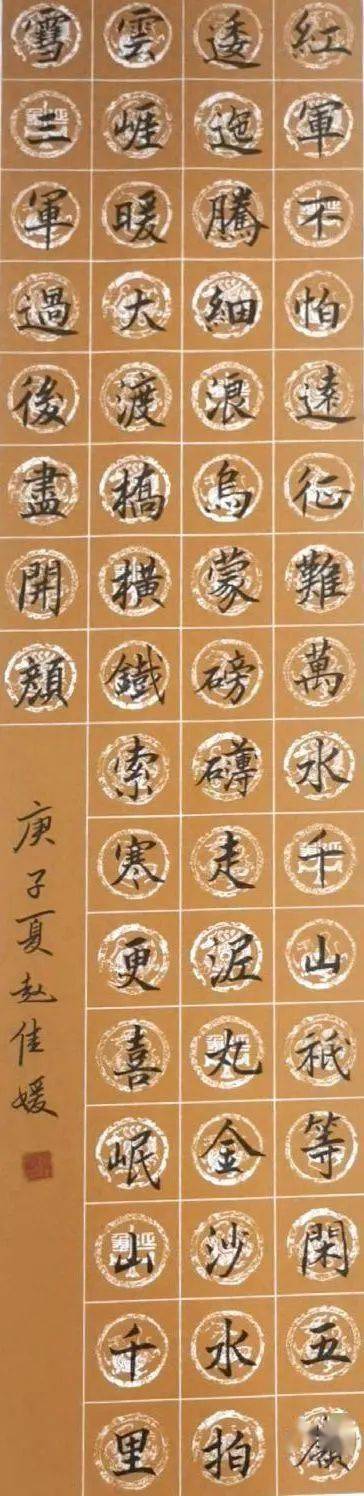 紅軍不怕遠征難萬水千山祇等閑五嶺
逶迤騰細浪烏蒙磅礴走泥丸金沙水拍
雲崕暖大渡橋横鐵索寒更喜岷山千里
雪三軍過後盡開顔
庚子夏赵佳媛